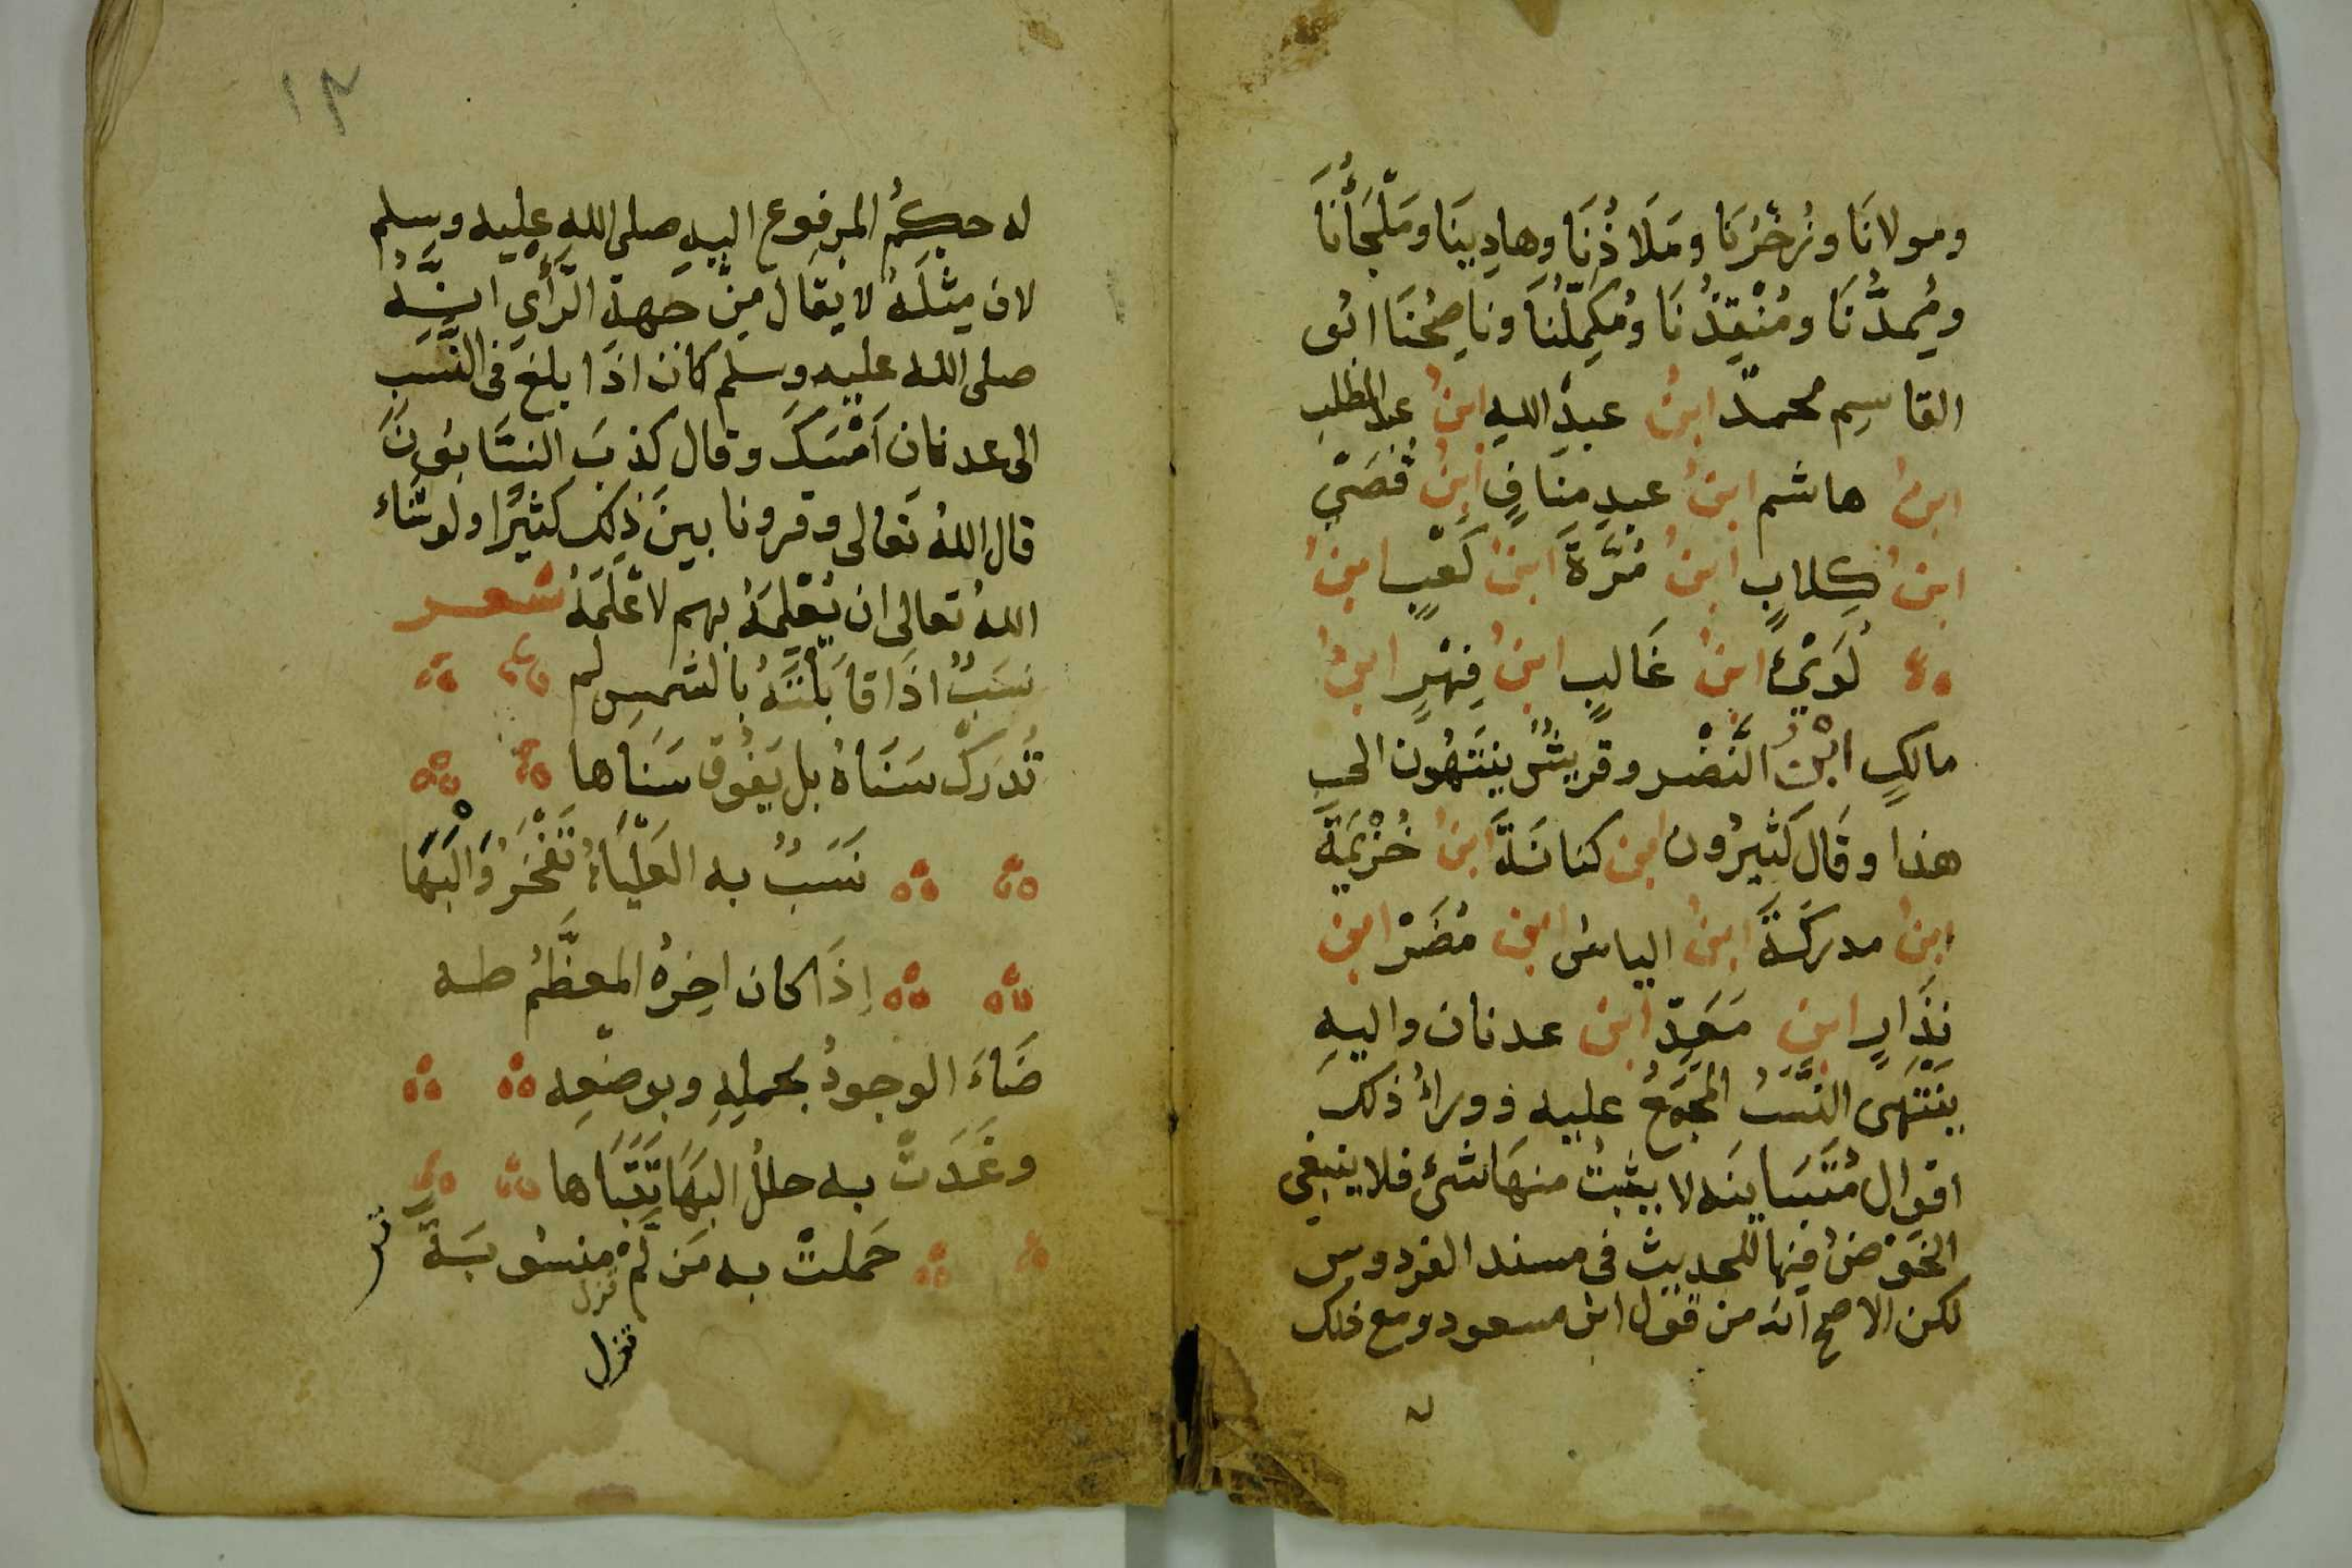 ومولانَا وذُخْرُنَا ومَلَاذُنَا وهادِينَا ومَلْجَأُنَا
ومُمِدُّنَا ومُنْقِذُنَا ومُكَمِّلُنَا ونَاصِحُنَا ابُى
القاسِم محمدٌ ابنُ عبدِ اللهِ ابنُ عبد المطلب
ابنُ هاشم ابنُ عبدِ مَنَافٍ ابنُ قُصَىّ
ابنُ كِلابٍ ابنُ مُرَّةَ ابنُ كَعْبٍ ابنُ
لُوَىْءٍ ابنُ غَالبٍ ابنُ فِهْرٍ ابنُ
مالكٍ ابْنُ النَّضْرِ وقريشٌ يَنْتَهُون الى
هذا وقَال كَثيرُون ابن كنانَةَ ابنُ خُزَيْمَةَ
ابنُ مدركَةَ ابنُ الياسُ ابن مُضَرْ ابن
نِذَارٍ ابن مَعَدِّ ابن عدنان واليهِ
يَنْتَهَى النَّسَبُ المجمَعُ عليه ووراءُ ذلك
اقوال مُتَبَاينَه لا يثبتُ منهَا شىءٌ فلا ينبغى
الخَوْضُ فيها للحديث فى مسند الفردوس
لكن الاصح انه من قول ابن مسعود ومع ذلك
١٣
له حكمُ المرفوع اليهِ صلى الله عليه وسلم
لان مثلَهُ لا يقَال مِنْ جهةِ الرَّأْىِ انَّهُ
صلى الله عليه وسلم كان اذا بلغ فى النَّسَبِ
الى عدنان اَمْسَكَ وقال كذبَ النسَّابُونَ
قال اللهُ تعَالى وقرونا بينَ ذلِكَ كثيرًا ولو شَاء
اللهُ تعالى ان يُعْلِمَهُ بهم لاَعْلَمَهُ شعر
نسَبٌ اذَا قَابَلْتَهُ بالشمسِ لم
تُدرَكْ سَنَاهُ بل يَفُوق سَنَاها
نَسَبٌ به العَلْيَاءُ تَفْخَرُ وَالبَهَا
اِذَا كان اخِرُهُ المعظَّمُ طه
ضَاءَ الوجودُ بحملِهِ وبوضعِه
وغَدَتْ به حللُ البهَا تَتَبَاها
حَملتْ به مَن لَمْ منسُوبَةً
تزل
تزل